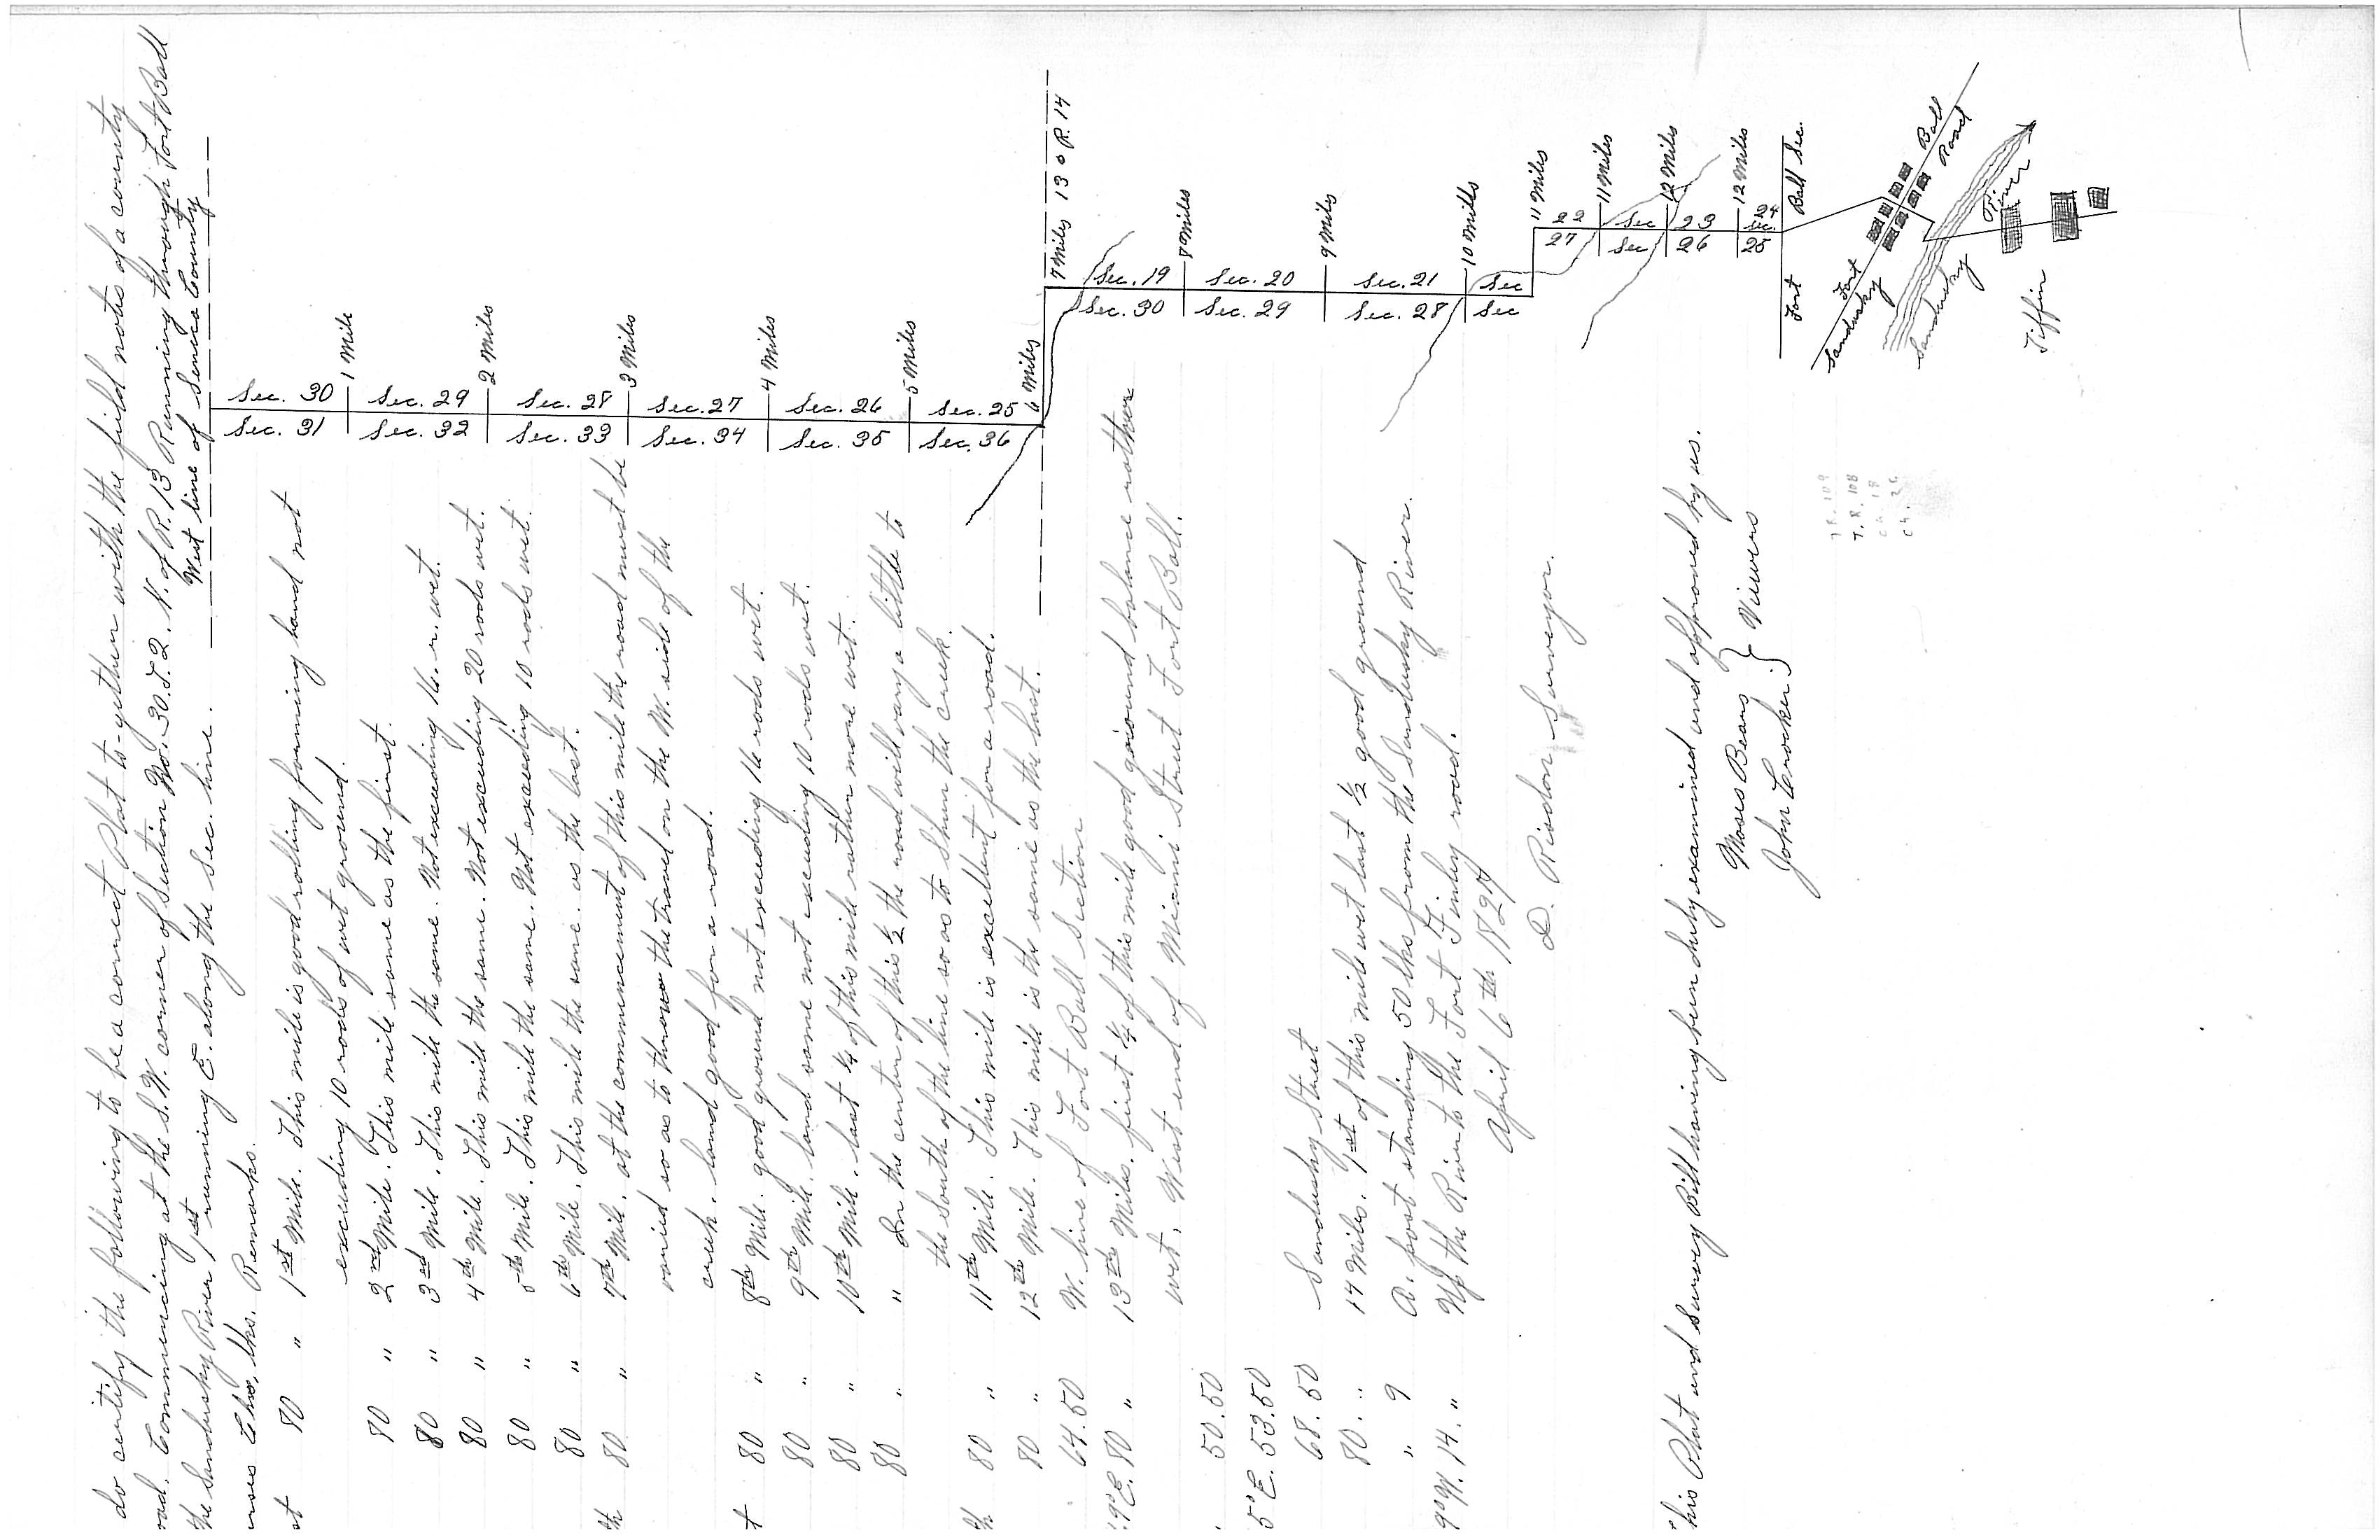 do certify the following to be a correct Plat to-gether with the field notes of a county
oad. Commencing at the S.W. corner of Section No. 30. T. 2. N. of R. 13 Running through Fort Ball
the Sandusky River 1st running E. along the Sec. line.
West line of Seneca County
urses Chs, lks. Remarks.
st 80 " 1st Mile. This mile is good rolling farming land not
exceeding 10 rods of wet ground.
80 " 2nd Mile. This mile same as the first.
80 " 3rd Mile. This mile the same. Not exceeding 16. r. wet.
80 " 4th Mile. This mile the same. Not exceeding 20 rods wet.
80 " 5th Mile. This mile the same. Not exceeding 10 rods wet.
80 " 6th Mile. This mile the same. as the last.
th 80 " 7th Mile. at the commencement of this mile the road must be
varied so as to throw the travel on the W. side of the
creek. land good for a road.
t 80 " 8th Mile. good ground not exceeding 16 rods wet.
80 " 9th Mile. land same not exceeding 10 rods wet.
80 " 10th Mile. last 1/4 of this mile rather more wet.
80 " " In the center of this 1/2 the road will vary a little to
the South of the line so as to Shun the creek.
th 80 " 11th Mile. This mile is excellent for a road.
80 " 12th Mile. This mile is the same as the last.
64.50 W. line of Fort Ball Section
9°E. 80 " 13th Mile. first 1/4 of this mile good ground balance rather
wet. West end of Miami Street Fort Ball.
50.50
5°E. 53.50
68.50 Sandusky Street
80. " 14 Miles. 1st of this mile wet last 1/2 good ground
" 9 A. post standing 50 lks from the Sandusky River.
9°W. 14. " Up the River to the Fort Finley road.
April 6th 1827
D. Risdon Surveyor.
his Plat and Survey Bill having been duly examined and approved by us.
Moses Beans
John Crocker } Viewers
Sec. 30
Sec. 31
1 Mile
Sec. 29
Sec. 32
2 Miles
Sec. 28
Sec. 33
3 Miles
Sec. 27
Sec. 34
4 Miles
Sec. 26
Sec. 35
5 Miles
Sec. 25
Sec. 36
6 Miles
7 Miles 13 o R. 14
Sec. 19
Sec. 30
8 Miles
Sec. 20
Sec. 29
9 Miles
Sec. 21
Sec. 28
10 Miles
Sec
Sec
11 Miles
22
27
11 Miles
Sec
Sec
12 Miles
23
26
12 Miles
24
Sec.
25
Fort Ball Sec.
Sandusky
Fort Ball
Road
Sandusky River
Tiffin
T.R. 108